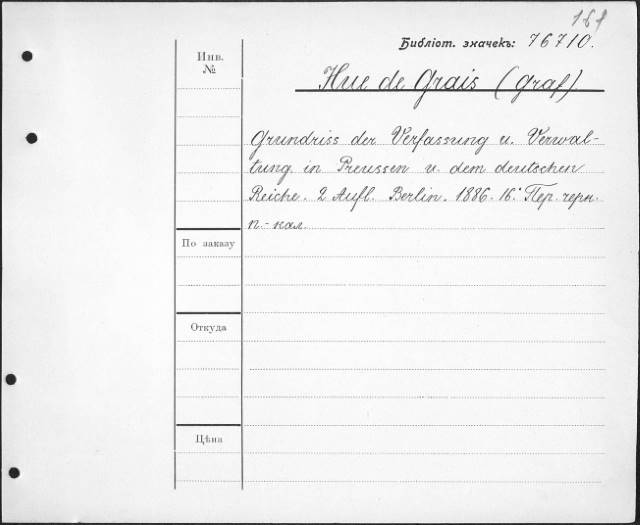 161
Библіот. значекъ: 76710.
Инв.
№
Hue de Grais (Graf)
Grundriss der Verfassung u. Verwal-
tung in Preussen u. dem deutschen
Reiche. 2 Aufl. Berlin. 1886. 16° Пер. черн.
п.-кал.
По заказу
Откуда
Цѣна